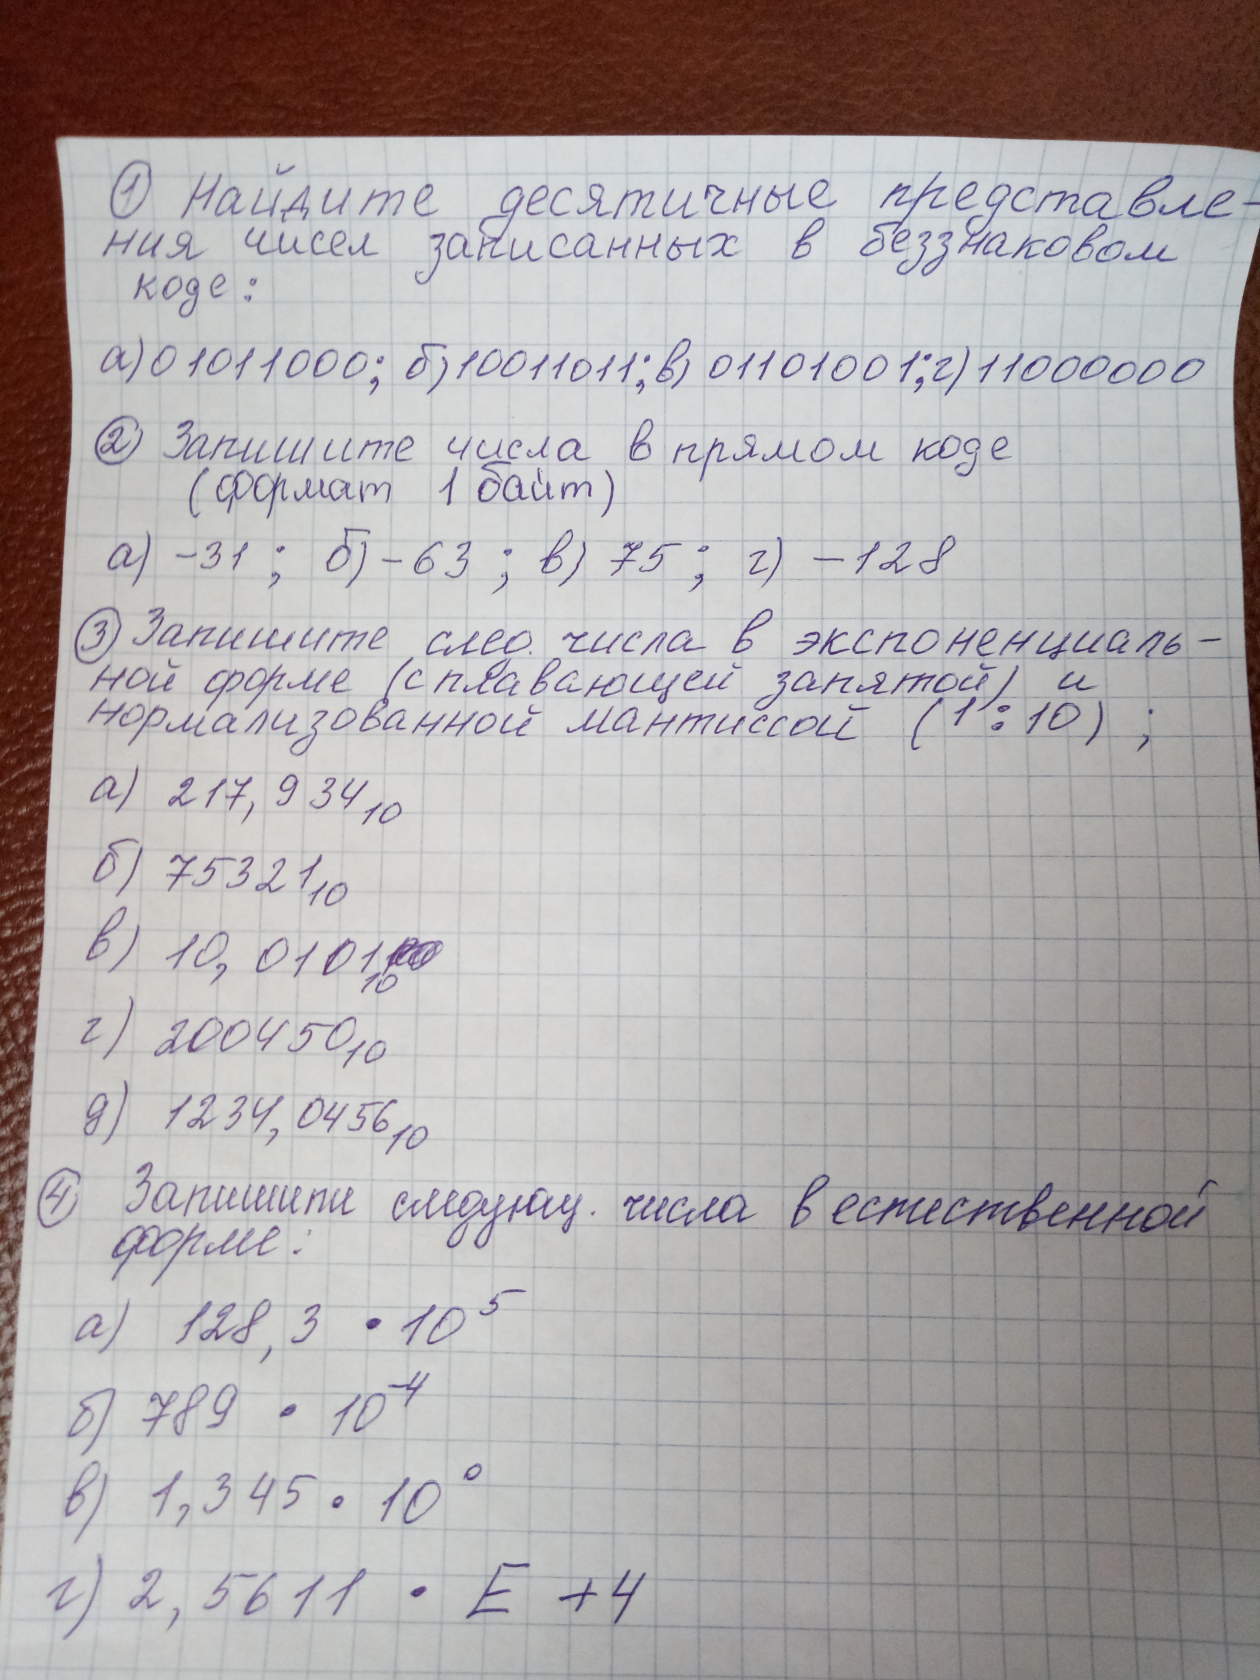 ① Найдите десятичные представле-
ния чисел записанных в беззнаковом
коде:
а) 01011000; б) 10011011; в) 01101001; г) 11000000
② Запишите числа в прямом коде
(формат 1 байт)
а) -31; б) -63; в) 75; г) -128
③ Запишите след. числа в экспоненциаль-
ной форме (с плавающей запятой) и
нормализованной мантиссой (1:10);
а) 217,934₁₀
б) 75321₁₀
в) 10,0101₁₀
г) 200450₁₀
д) 1234,0456₁₀
④ Запишите следующ. числа в естественной
форме:
а) 128,3 • 10⁵
б) 789 • 10⁻⁴
в) 1,345 • 10⁰
г) 2,5611 • E +4